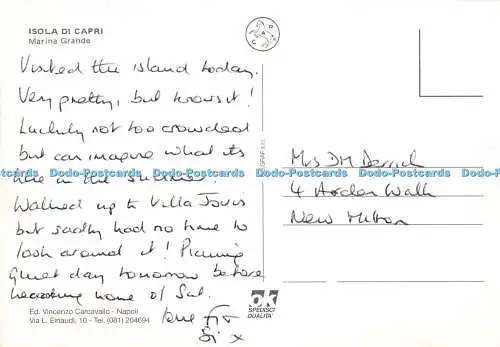 ISOLA DI CAPRI
Marina Grande
Visited the island today.
Very pretty, but knows it!
Luckily not too crowded
but can imagine what its
like in the summer
Walked up to Villa Jovis
but sadly had no time to
look around it! Planning
quiet day tomorrow before
heading home of Sat.
love
Si x
Ed. Vincenzo Carcavallo - Napoli
Via L. Einaudi, 10 - Tel. (081) 204694
GRAF s.r.l.
ok
SPEDISCI
QUALITA'
Mrs DM Derrick
4 Arden Walk
New Milton
Jodo-Postcards Jodo-Postcards Jodo-Postcards Jodo-Postcards Jodo-Postcards